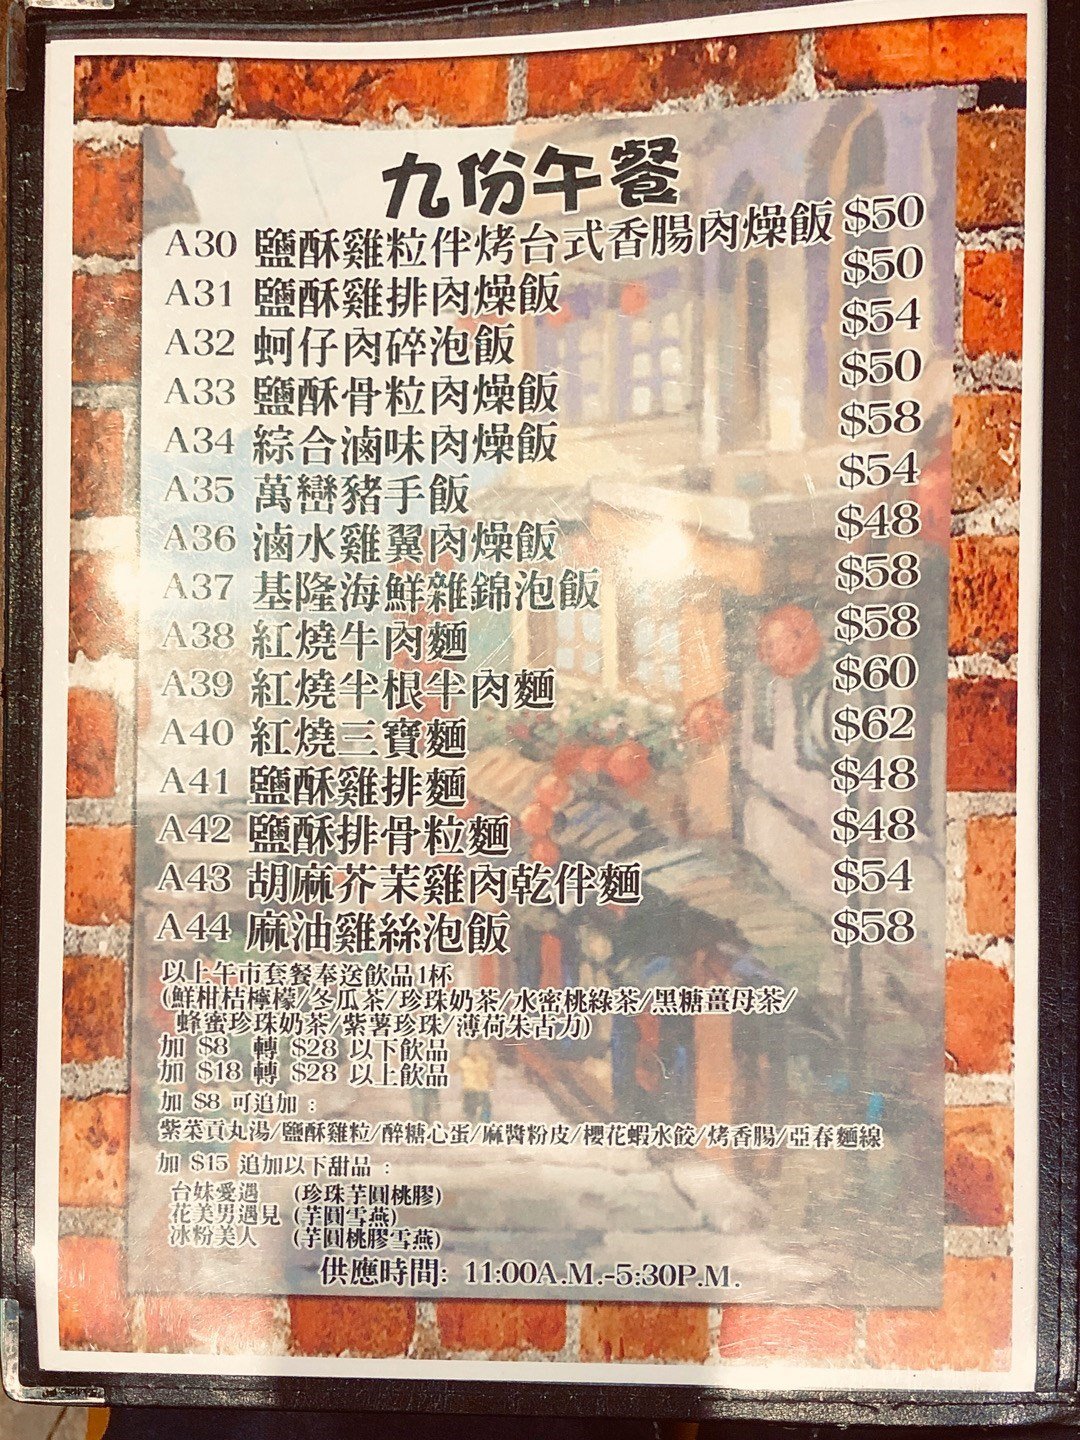 九份午餐
A30 鹽酥雞粒伴烤台式香腸肉燥飯 $50
A31 鹽酥雞排肉燥飯 $50
A32 蚵仔肉碎泡飯 $54
A33 鹽酥骨粒肉燥飯 $50
A34 綜合滷味肉燥飯 $58
A35 萬巒豬手飯 $54
A36 滷水雞翼肉燥飯 $48
A37 基隆海鮮雜錦泡飯 $58
A38 紅燒牛肉麵 $58
A39 紅燒半根半肉麵 $60
A40 紅燒三寶麵 $62
A41 鹽酥雞排麵 $48
A42 鹽酥排骨粒麵 $48
A43 胡麻芥茉雞肉乾伴麵 $54
A44 麻油雞絲泡飯 $58
以上午市套餐奉送飲品1杯
(鮮柑桔檸檬/冬瓜茶/珍珠奶茶/水密桃綠茶/黑糖薑母茶/
蜂蜜珍珠奶茶/紫薯珍珠/薄荷朱古力)
加 $8 轉 $28 以下飲品
加 $18 轉 $28 以上飲品
加 $8 可追加 :
紫菜貢丸湯/鹽酥雞粒/醉糖心蛋/麻醬粉皮/櫻花蝦水餃/烤香腸/亞春麵線
加 $15 追加以下甜品 :
台妹愛遇 (珍珠芋圓桃膠)
花美男遇見 (芋圓雪燕)
冰粉美人 (芋圓桃膠雪燕)
供應時間: 11:00A.M.-5:30P.M.